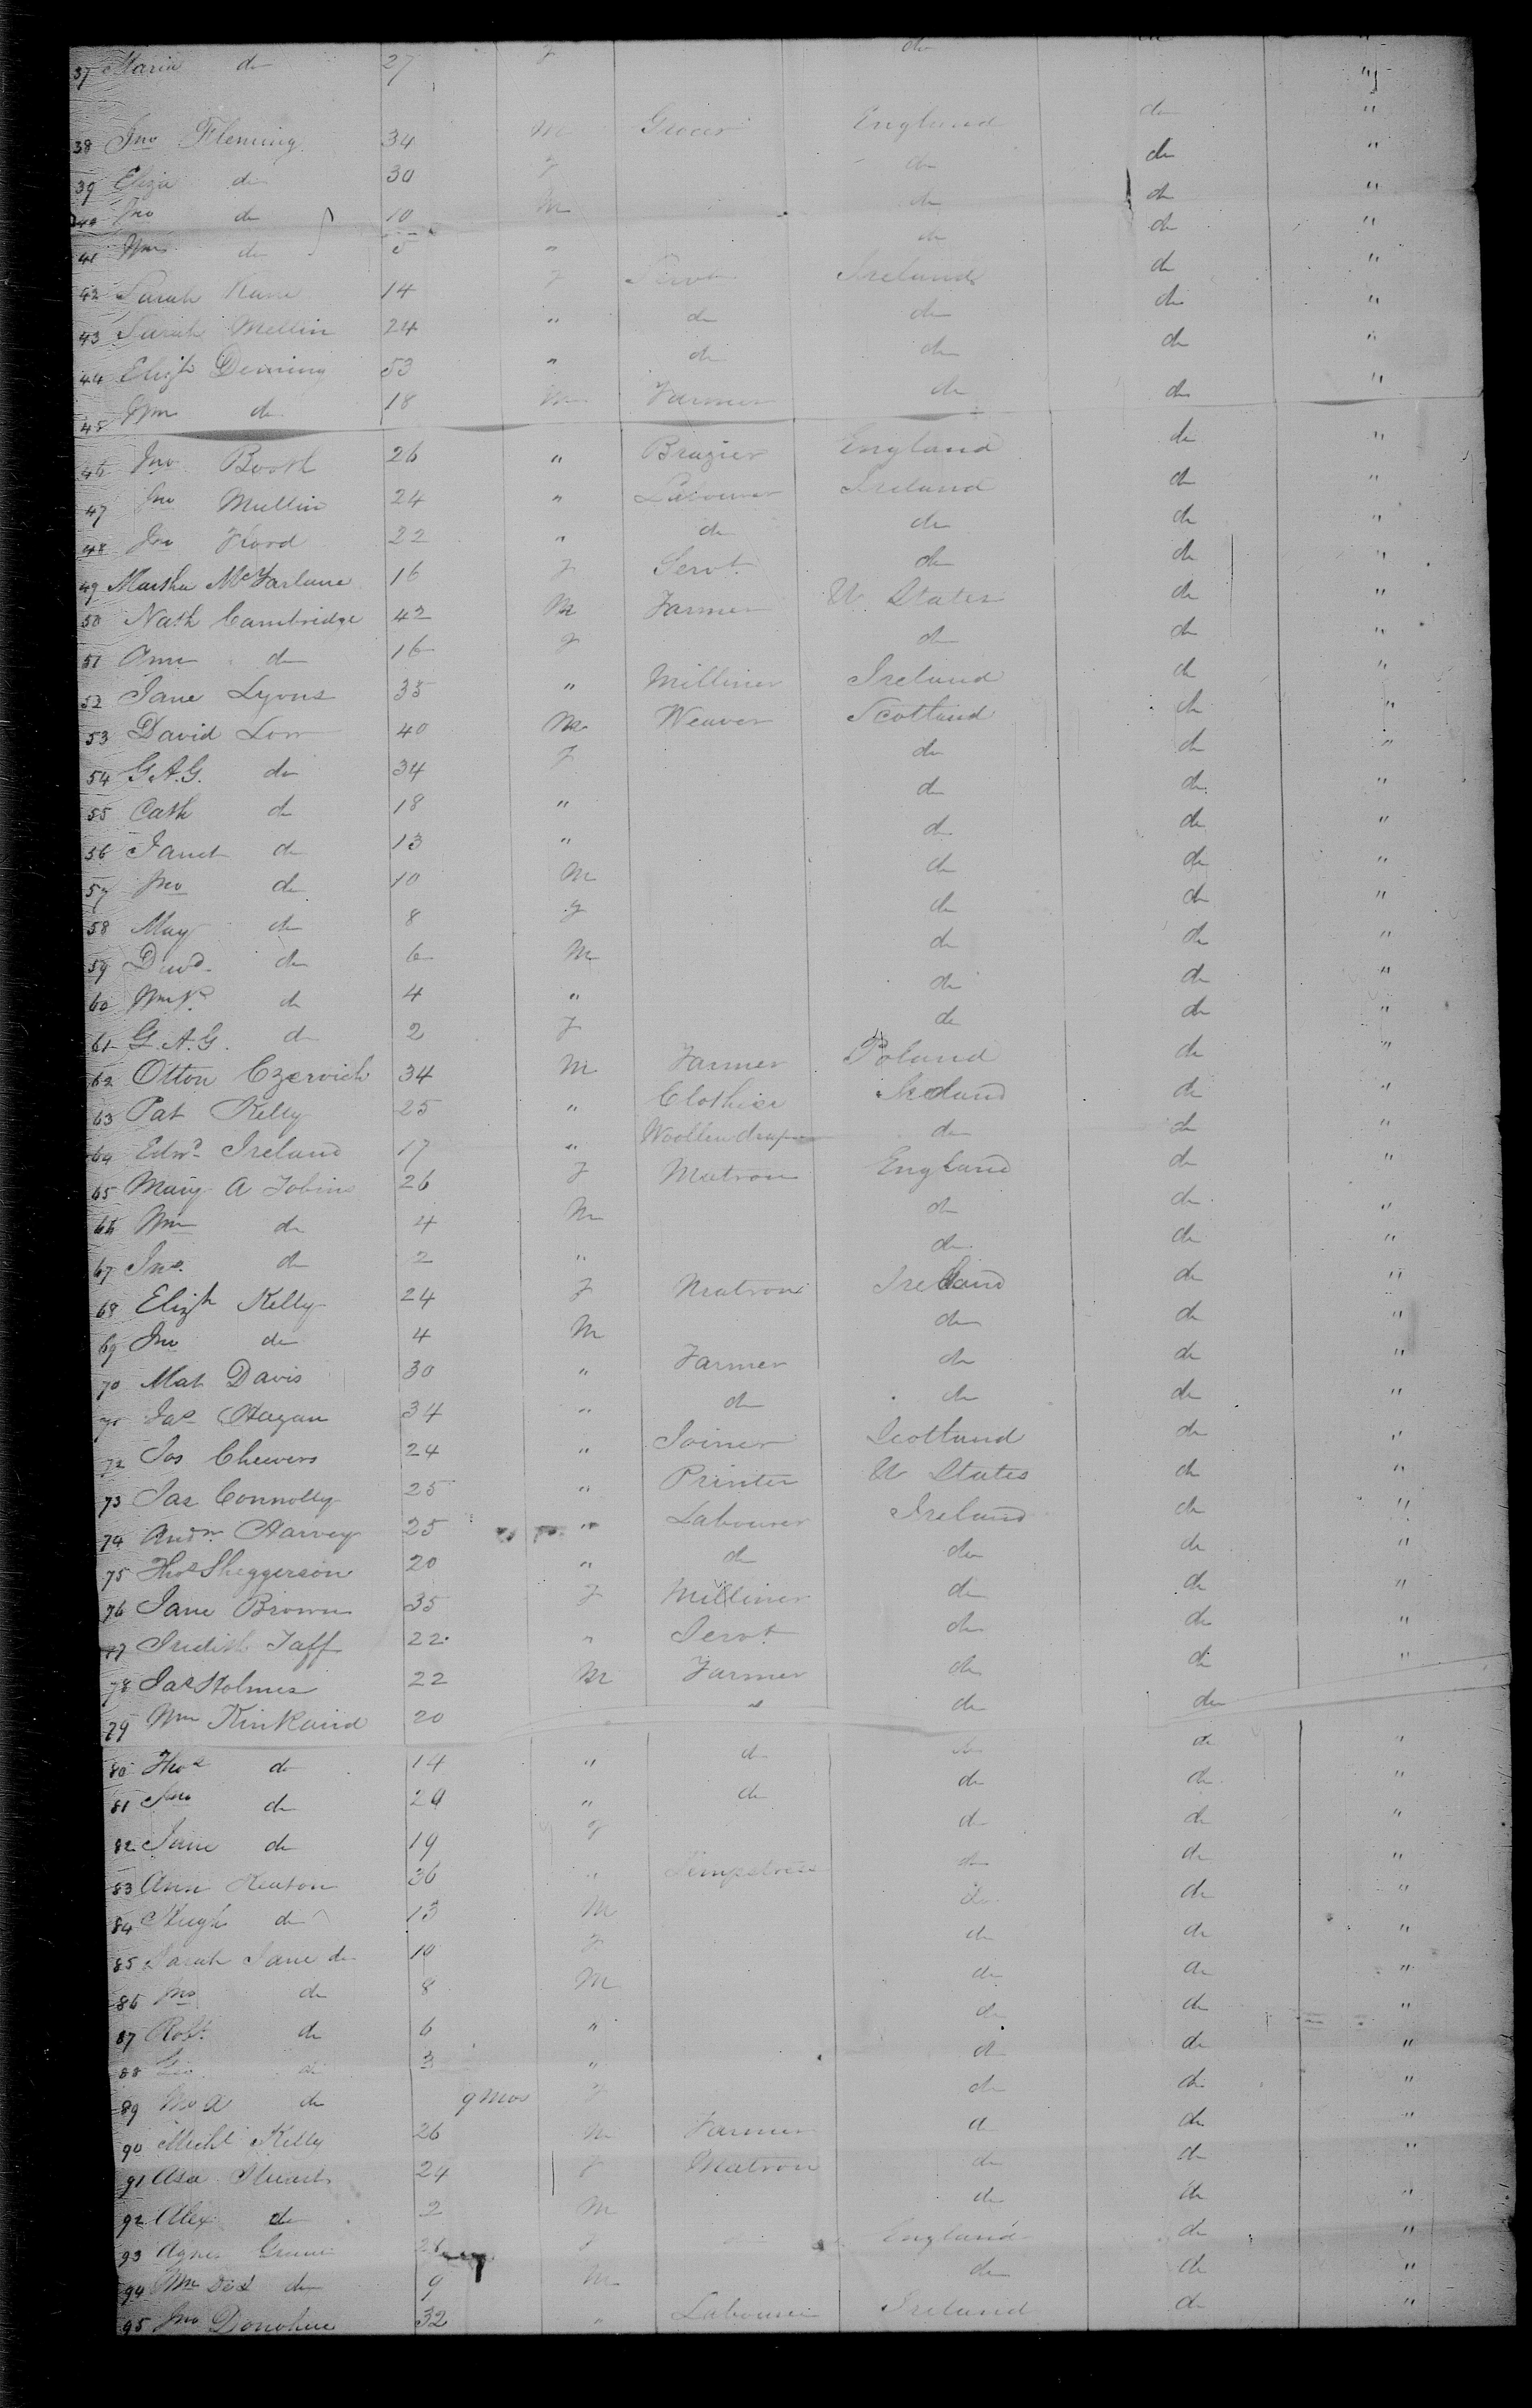 37 Maria do 27 F do do "
38 Jno Fleming 34 M Grocer England do "
39 Eliza do 30 F do do "
40 Jno do 10 M do do "
41 Wm do " do do "
42 Sarah Kane 14 F Servt Ireland do "
43 Sarah Mellin 24 " do do do "
44 Elizh Deining 53 " do do do "
45 Wm do 18 M Farmer do do "
46 Jno Booth 26 " Brazier England do "
47 Jno Mullin 24 " Labourer Ireland do "
48 Jno Flood 22 " do do do "
49 Martha McFarlane 16 F Servt do do "
50 Nath Cambridge 42 M Farmer U States do "
51 Ann do 16 F do do "
52 Jane Lyons 35 " Milliner Ireland do "
53 David Low 40 M Weaver Scotland do "
54 G.A.G. do 34 F do do "
55 Cath do 18 " do do "
56 Janet do 13 " do do "
57 Jno do 10 M do do "
58 May do 8 F do do "
59 Davd do 6 M do do "
60 Wm do 4 " do do "
61 G.A.G. do 2 F do do "
62 Otton Czervich 34 M Farmer Poland do "
63 Pat Kelly 25 " Clothier Ireland do "
64 Edwd Ireland 17 " Woollen draper do do "
65 Mary A Tobins 26 F Matron England do "
66 Wm do 4 M do do "
67 Jno. do 2 " do do "
68 Elizh Kelly 24 F Matron Ireland do "
69 Jno do 4 M do do "
70 Mat Davis 30 " Farmer do do "
71 Jas Hagan 34 " do do do "
72 Jos Cheevers 24 " Joiner Scotland do "
73 Jas Connolly 25 " Printer U States do "
74 Andw Harvey 25 " Labourer Ireland do "
75 Thos Sheggerson 20 " do do do "
76 Jane Brown 35 F Milliner do do "
77 Judith Taff 22 " Servt do do "
78 Jas Holmes 22 M Farmer do do "
79 Wm Kinkaird 20 " do do
80 Thos do 14 " do do do "
81 Jno do 20 " do do do "
82 Jane do 19 F do do "
83 Ann Heaton 36 " Sempstress do do "
84 Hugh do 13 M do do "
85 Sarah Jane do 10 F do do "
86 Jno do 8 M do do "
87 Robt. do 6 " do do "
88 Geo. do 3 " do do "
89 do 9 mos F do do "
90 Michl Kelly 26 M Farmer do do "
91 Asa Stuart 24 F Matron do do "
92 Alex do 2 M do do "
93 Agnes 28 F England do "
94 Wm do 9 M do do "
95 Jno Donohue 32 " Labourer Ireland do "